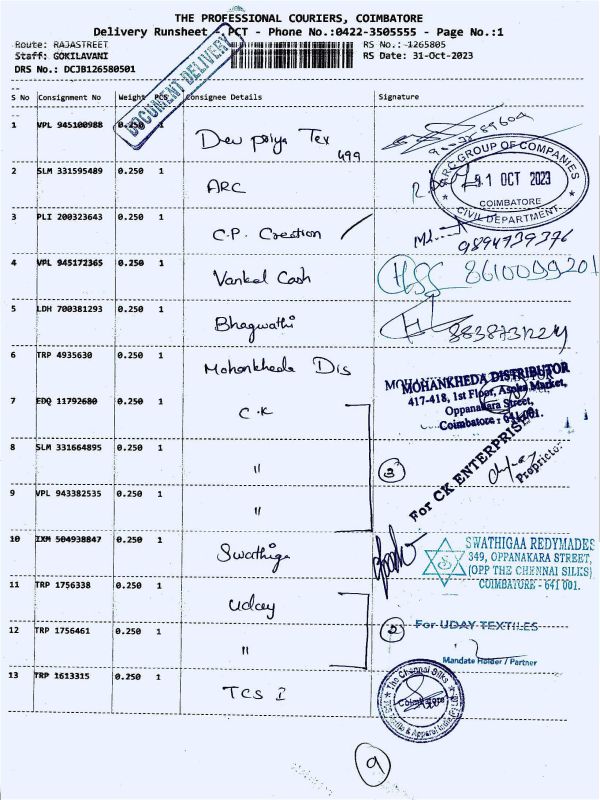 THE PROFESSIONAL COURIERS, COIMBATORE
Delivery Runsheet - PCT - Phone No.:0422-3505555 - Page No.:1
Route: RAJASTREET RS No.: 1265805
Staff: GOKILAVANI RS Date: 31-Oct-2023
DRS No.: DCJB126580501
DOCUMENT DELIVERY
S No Consignment No Weight PCS Consignee Details Signature
1 VPL 945100988 0.250 1 Dev priya Tex
499
2 SLM 331595489 0.250 1 ARC
ARC GROUP OF COMPANIES
31 OCT 2023
COIMBATORE
CIVIL DEPARTMENT
3 PLI 200323643 0.250 1 C.P. Creation
9894739376
4 VPL 945172365 0.250 1 Vankal Cash
5 LDH 700381293 0.250 1 Bhagwathi
6 TRP 4935630 0.250 1 Mohankheda Dis
MOHANKHEDA DISTRIBUTOR
417-418, 1st Floor, Asoka Market,
Oppanakara Street,
Coimbatore - 641 001.
7 EDQ 11792680 0.250 1 C.K
8 SLM 331664895 0.250 1 "
3
For CK ENTERPRISE
Proprietor
9 VPL 943382535 0.250 1 "
10 IXM 504938847 0.250 1 Swathiga
SWATHIGAA REDYMADES
349, OPPANAKARA STREET,
(OPP THE CHENNAI SILKS)
COIMBATORE - 641 001.
11 TRP 1756338 0.250 1 Uday
12 TRP 1756461 0.250 1 "
2
For UDAY TEXTILES
Mandate Holder / Partner
13 TRP 1613315 0.250 1 TCS I
The Chennai Silks
Coimbatore
9